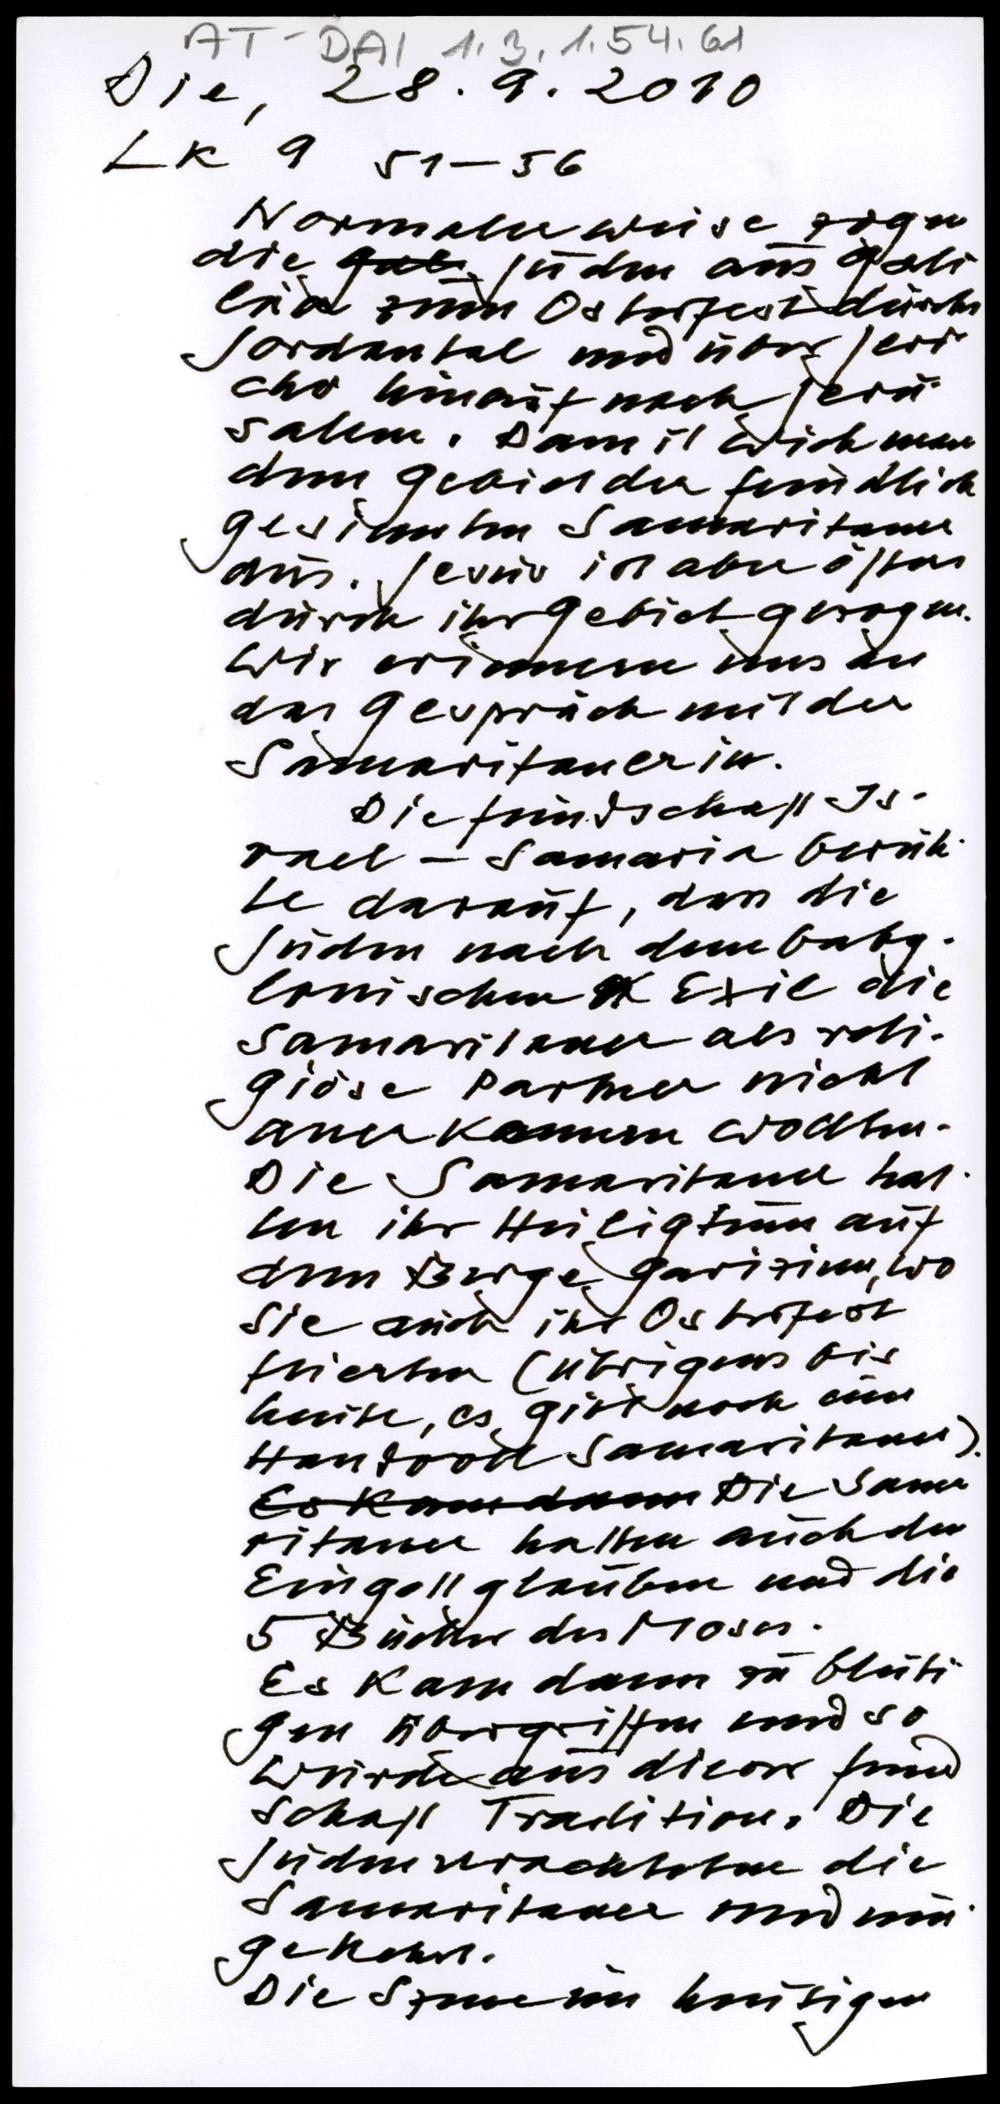 AT-DAI 1.3.1.54.61
Die, 28.9.2010
Lk 9 51–56
Normalerweise zogen
die Juden aus Gali
läa zum Osterfest durchs
Jordantal und über Jeri-
cho hinauf nach Jeru-
salem. Damit wich man
dem Gebiet der feindlich
gesinnten Samaritaner
aus. Jesus ist aber öfter
durch ihr Gebiet gezogen.
Wir erinnern uns an
das Gespräch mit der
Samaritanerin.
Die Feindschaft Is-
rael – Samaria beruh-
te darauf, dass die
Juden nach dem baby-
lonischen Exil die
Samaritaner als reli-
giöse Partner nicht
anerkennen wollten.
Die Samaritaner hat-
ten ihr Heiligtum auf
dem Berge Garizim, wo
sie auch ihr Osterfest
feierten (übrigens bis
heute, es gibt noch eine
Handvoll Samaritaner).
Es kam dann Die Sama
ritaner hatten auch den
Eingottglauben und die
5 Bücher des Moses.
Es kam dann zu bluti-
gen Übergriffen und so
wurde aus dieser Feind
schaft Tradition. Die
Juden verachteten die
Samaritaner und um-
gekehrt.
Die Szene im heutigen